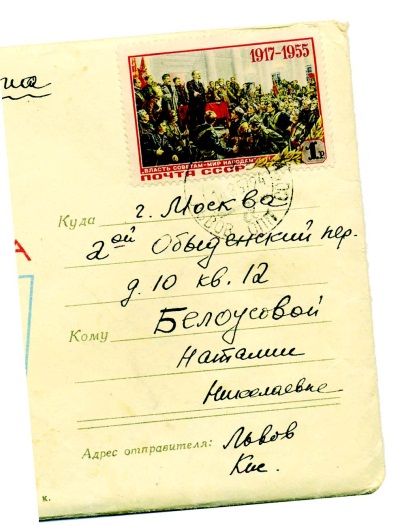 1917-1955
"ВЛАСТЬ СОВЕТАМ-МИР НАРОДАМ"
1 р
ПОЧТА СССР
Куда г. Москва
2ой Обыденский пер.
д. 10 кв. 12
Кому Белоусовой
Наталии
Николаевне
Адрес отправителя: Львов
Кис.
к.